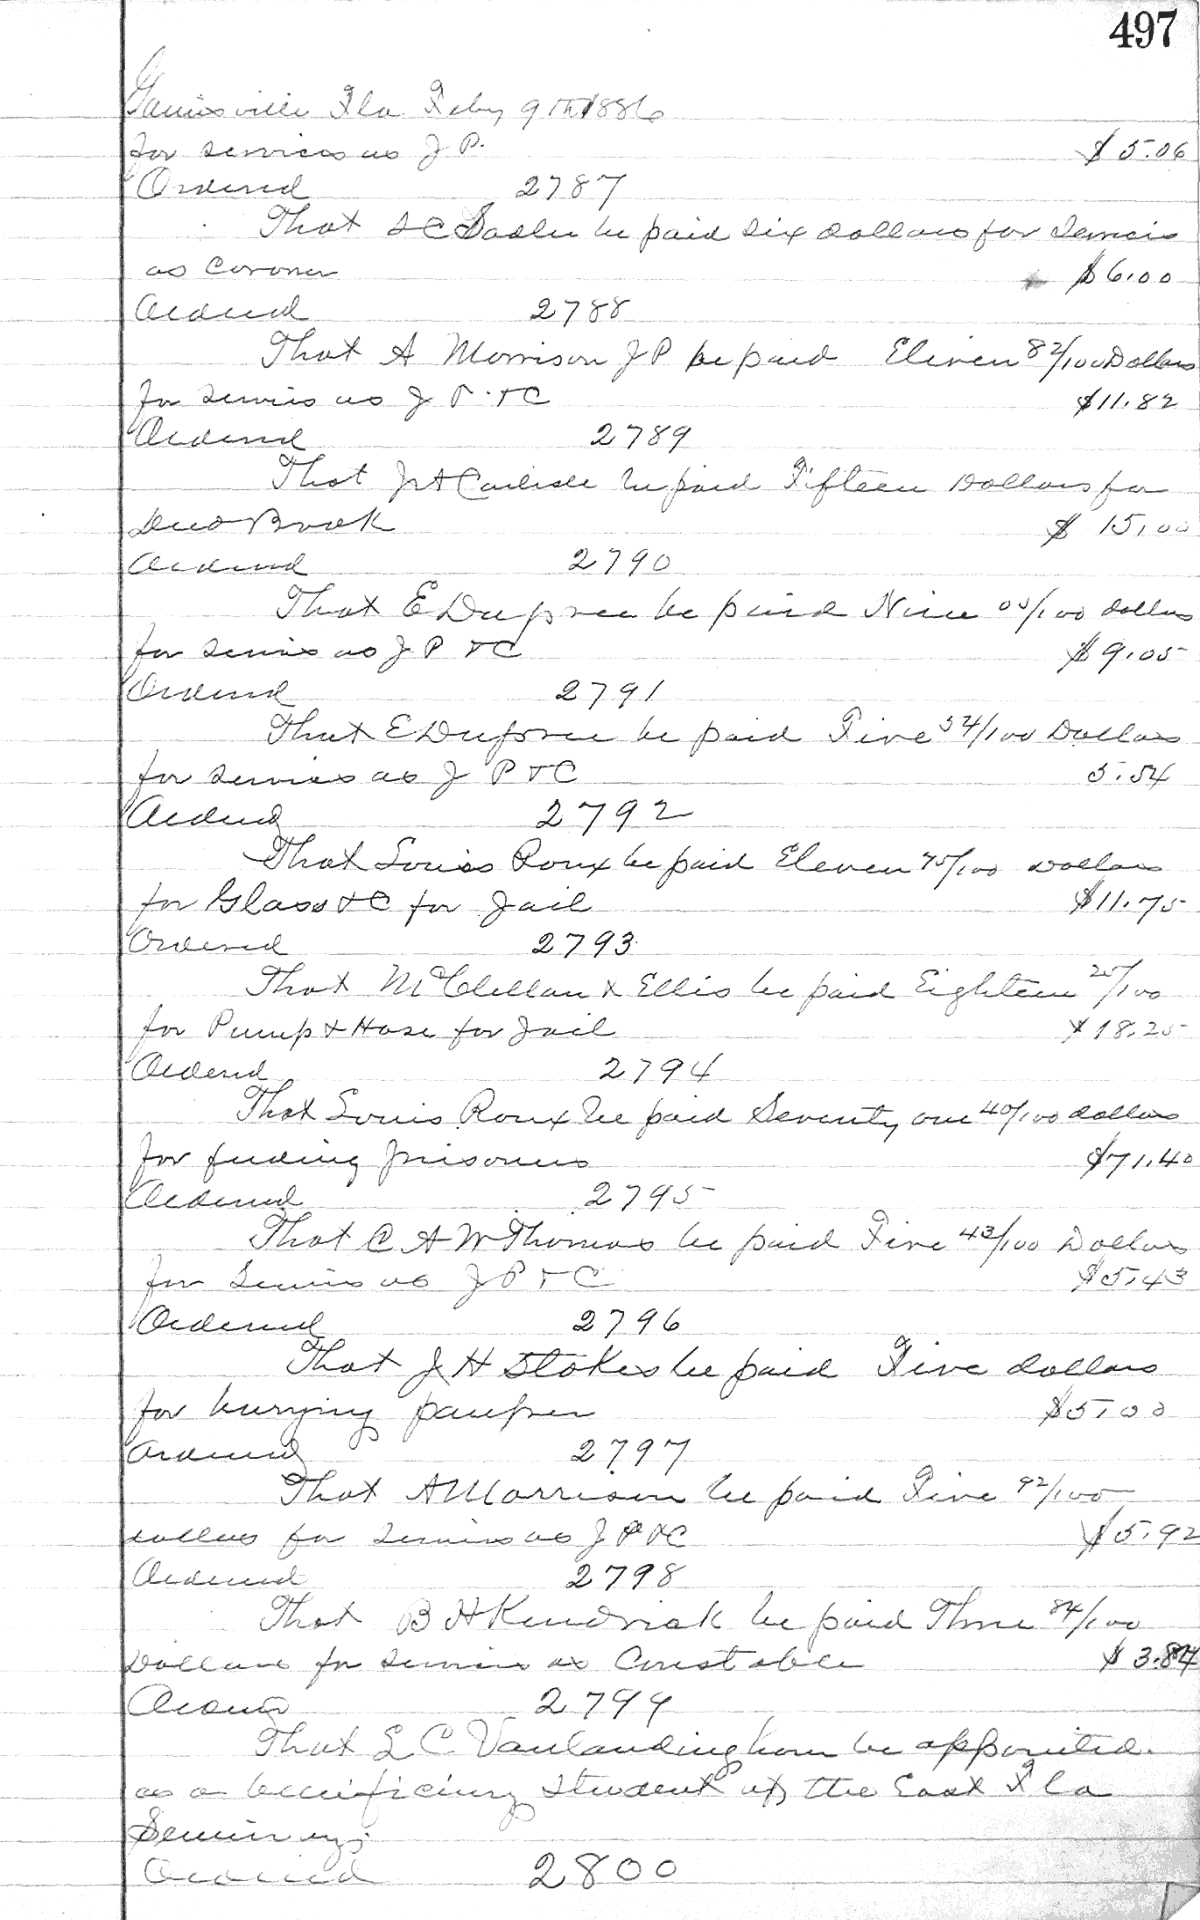 497
Gainesville Fla Feby 9th 1886
for services as J P. $5.06
Ordered 2787
That be paid Six dollars for Services
as Coroner $6.00
Ordered 2788
That A Morrison J P be paid Eleven 82/100 Dollars
for services as J P. &C $11.82
Ordered 2789
That Carlisle be paid Fifteen Dollars for
Deed Book $15.00
Ordered 2790
That E Dupree be paid Nine 05/100 dollars
for services as J P &C $9.05
Ordered 2791
That E Dupree be paid Five 54/100 Dollars
for services as J P &C 5.54
Ordered 2792
That Louis Roux be paid Eleven 75/100 Dollars
for Glass &C for Jail $11.75
Ordered 2793
That McClellan & Ellis be paid Eighteen 25/100
for Pump & Hose for Jail $18.25
Ordered 2794
That Louis Roux be paid Seventy one 40/100 dollars
for feeding prisoners $71.40
Ordered 2795
That C A W Thomas be paid Five 43/100 Dollars
for Services as J P & C $5.43
Ordered 2796
That J H Stokes be paid Five dollars
for burying pauper $5.00
Ordered 2797
That A Morrison be paid Five 92/100
dollars for services as J P &C $5.92
Ordered 2798
That B H Kendrick be paid Three 84/100
Dollars for services as Constable $3.84
Ordered 2799
That L C Vanlandingham be appointed
as a beneficiary student of the East Fla
Seminary.
Ordered 2800